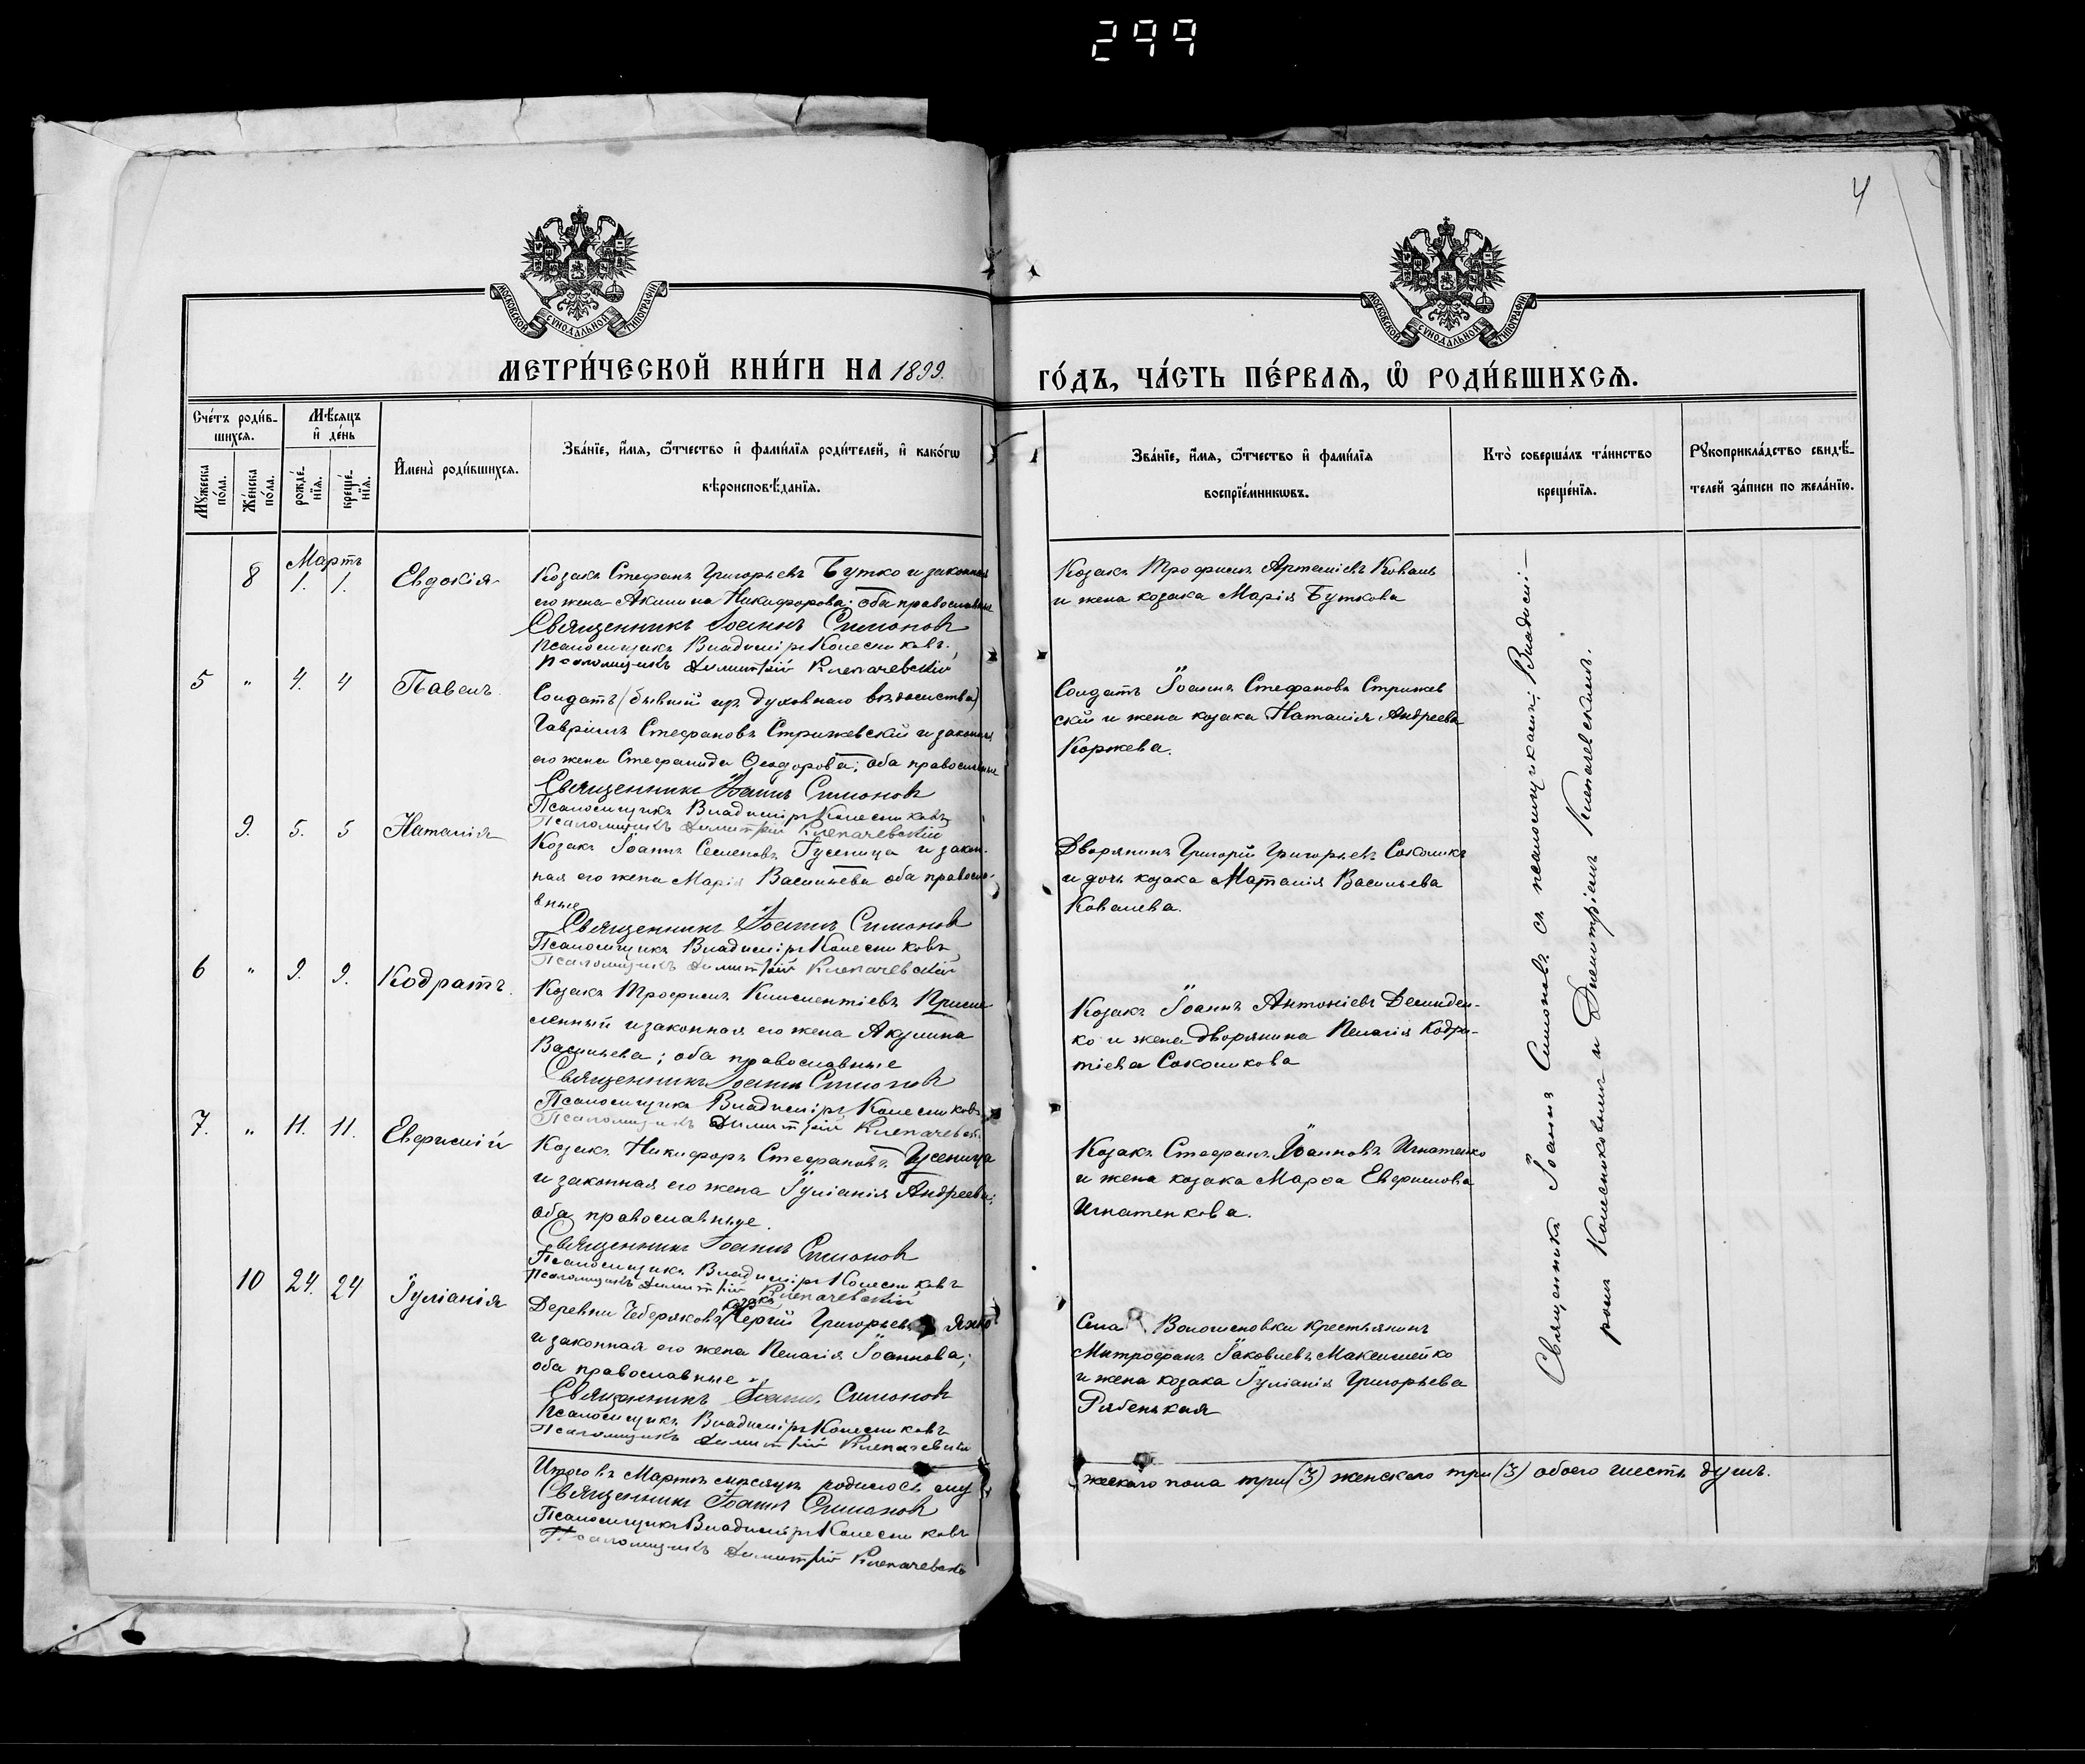 299
4
МОСКОВСКОЙ СѴНОДАЛЬНОЙ ТИПОГРАФІИ
МОСКОВСКОЙ СѴНОДАЛЬНОЙ ТИПОГРАФІИ
МЕТРИ́ЧЕСКОЙ КНИ́ГИ НА 1899.
ГО́ДЪ, ЧА́СТЬ ПЕ́РВАѦ, Ѡ҆ РОДИ́ВШИХСѦ.
Сче́тъ роди́в-
шихсѧ.
Мѣ́сѧцъ
и҆ де́нь
Мꙋ́жеска по́ла.
Же́нска по́ла.
рожде́-
нїѧ.
креще́-
нїѧ.
И҆мена̀ роди́вшихсѧ.
Зва́нїе, и҆́мѧ, ѻ҆́тчество и҆ фами́лїѧ роди́телей, и҆ како́гѡ
вѣроисповѣ́данїѧ.
Зва́нїе, и҆́мѧ, ѻ҆́тчество и҆ фами́лїѧ
воспрїе́мникѡвъ.
Кто̀ соверша́лъ та́инство
креще́нїѧ.
Рꙋкоприкла́дство свидѣ́-
телей за́писи по жела́нїю.
Мартъ
8 1. 1. Евдокія
Козакъ Стефанъ Григорьевъ Бутко и законная
его жена Акилина Никифорова; оба православные
Священникъ Іоаннъ Симонов
Псаломщикъ Владиміръ Колесниковъ
Псаломщикъ Димитрій Клепачевскій
Козакъ Трофимъ Артеміевъ Коваль
и жена козака Марія Буткова
5 " 4. 4 Павелъ.
Солдатъ (бывшій изъ духовнаго вѣдомства)
Гавріилъ Стефановъ Стрижевскій и законная
его жена Стефанида Ѳеодорова; оба православные
Священникъ Іоаннъ Симонов
Псаломщикъ Владиміръ Колесниковъ
Псаломщикъ Димитрій Клепачевскій
Солдатъ Іоаннъ Стефановъ Стрижев
скій и жена козака Наталія Андреева
Коржева.
9. 5. 5 Наталія
Козакъ Іоаннъ Семеновъ Гусеница и закон-
ная его жена Марія Васильева оба правосла-
вные
Священникъ Іоаннъ Симонов
Псаломщикъ Владиміръ Колесниковъ
Псаломщикъ Димитрій Клепачевскій
Дворянинъ Григорій Григорьевъ Сокологъ
и дочь козака Наталія Васильева
Ковалева.
6 " 9. 9. Кодратъ.
Козакъ Трофимъ Климентіевъ
и законная его жена Акулина
Васильева; оба православные
Священникъ Іоаннъ Симонов
Псаломщикъ Владиміръ Колесниковъ
Псаломщикъ Димитрій Клепачевскій
Козакъ Іоаннъ Антоніевъ Демиден-
ко и жена дворянина Пелагія Кодра-
тіева Соколикова
7. " 11. 11. Евфимій
Козакъ Никифоръ Стефановъ Гусеница
и законная его жена Іуліанія Андреева;
оба православные.
Священникъ Іоаннъ Симонов
Псаломщикъ Владиміръ Колесниковъ
Псаломщикъ Димитрій Клепачевскій
Козакъ Стефанъ Іоанновъ Игнатенко
и жена козака Марѳа Евфимова
Игнатенкова.
10 24. 24 Іуліанія
козакъ
Деревни Чеберяковъ Сергій Григорьевъ Яхно
и законная его жена Пелагія Іоаннова;
оба православные
Священникъ Іоаннъ Симонов
Псаломщикъ Владиміръ Колесниковъ
Псаломщикъ Димитрій Клепачевскій
Села Волошеновки крестьянинъ
Митрофанъ Іаковлевъ Максимейко
и жена козака Іуліанія Григорьева
Рябенькая
Священникъ Іоаннъ Симоновъ съ псаломщиками: Владимі-
ромъ Колесниковымъ и Димитріемъ Клепачевскимъ.
Итого въ Мартѣ мѣсяцѣ родилось му
жескаго пола три (3) женскаго три (3) обоего шесть душъ.
Священникъ Іоаннъ Симонов
Псаломщикъ Владиміръ Колесниковъ
Псаломщикъ Димитрій Клепачевскій